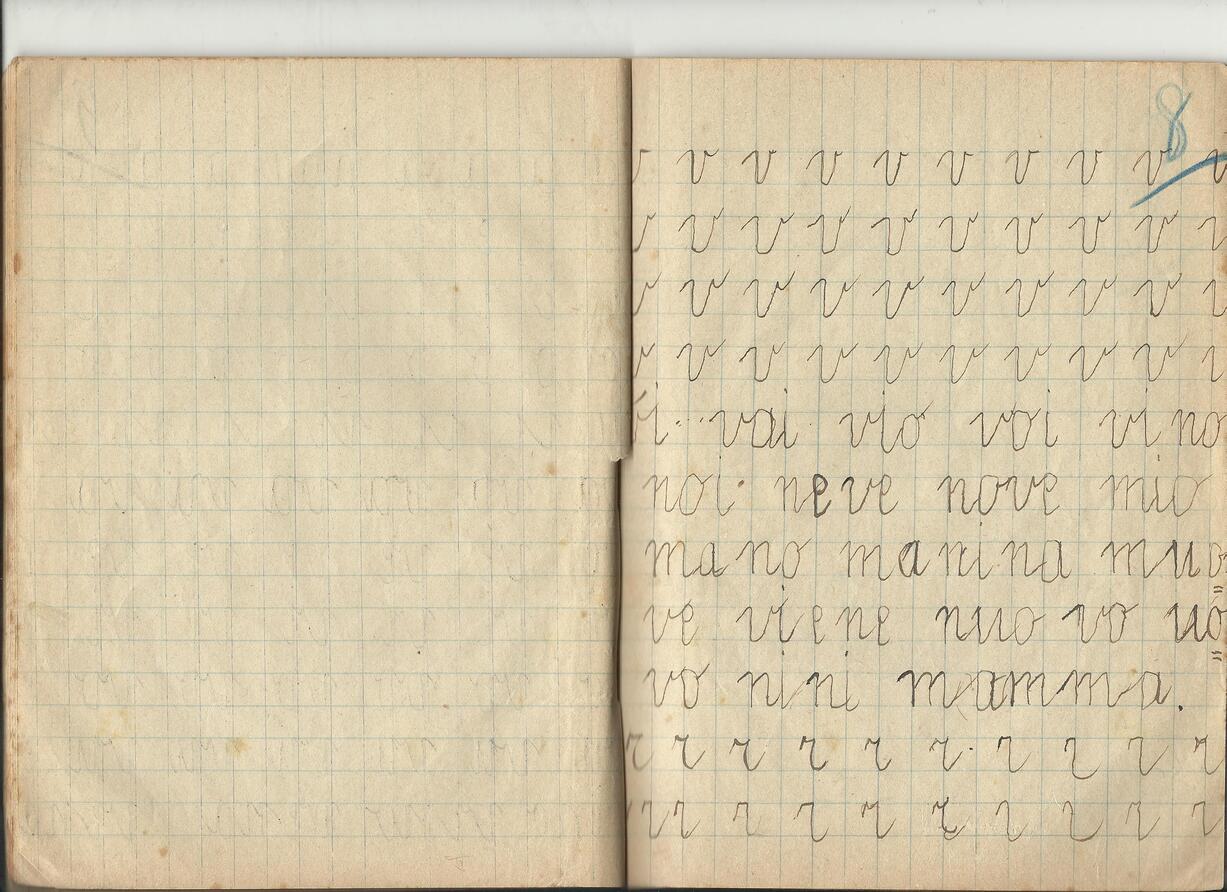 8
v v v v v v v v v v
v v v v v v v v v v
v v v v v v v v v v
v v v v v v v v v v
vi vai vio voi vino
noi neve nove mio
mano manina muo=
ve viene nuovo uo=
vo nini mamma.
r r r r r r r r r r
r r r r r r r r r r